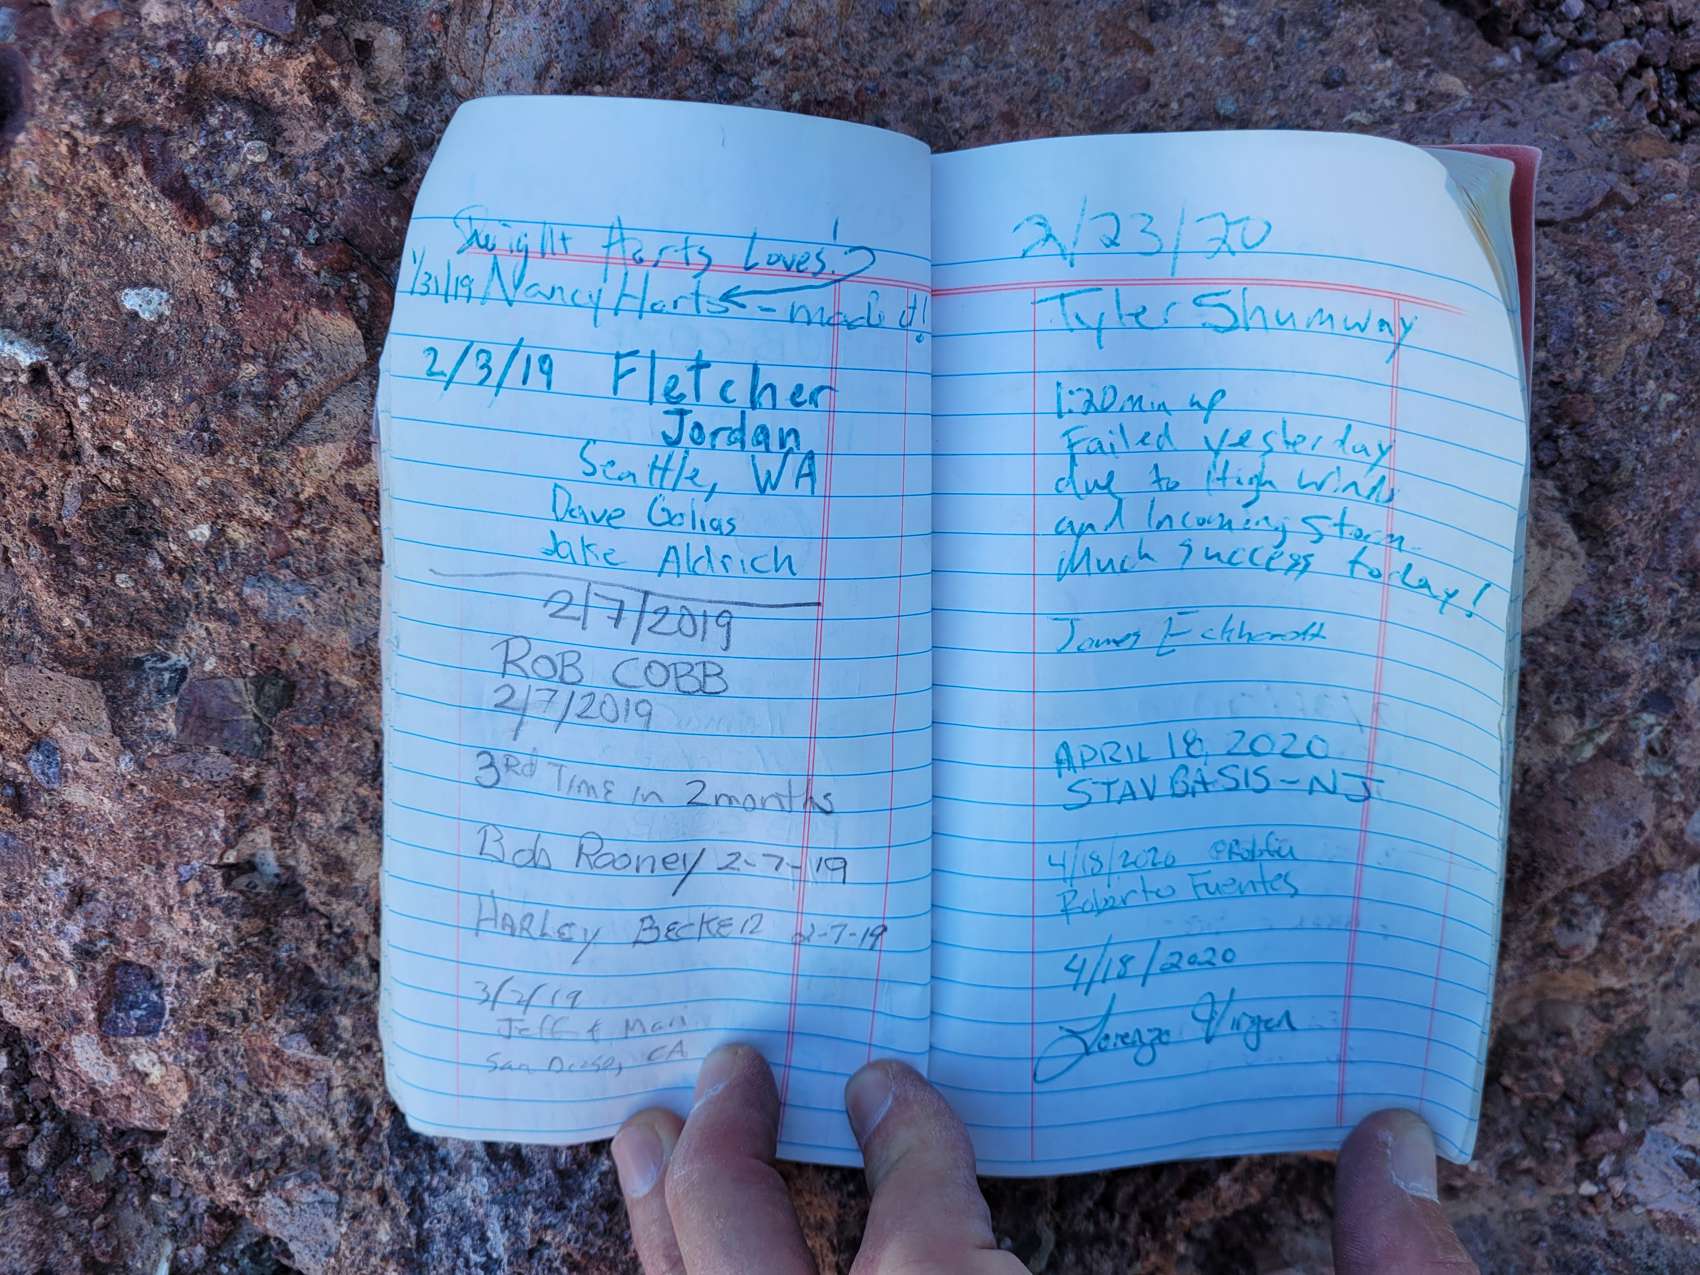 Dwight Harts Loves!
1/31/19 Nancy Harts - made it!
2/3/19 Fletcher
Jordan
Seattle, WA
Dave Golias
Jake Aldrich
2/7/2019
ROB COBB
2/7/2019
3RD TIME in 2 months
Bob Rooney 2-7-19
HARLEY BECKER 2-7-19
3/2/19
Jeff &
San Diego, CA
2/23/20
Tyler Shumway
1:20 min up
Failed yesterday
due to High winds
and Incoming storm.
Much success today!
James Eckhardt
APRIL 18, 2020
STAV BASIS - NJ
4/18/2020
Roberto Fuentes
4/18/2020
Lorenzo Virgen